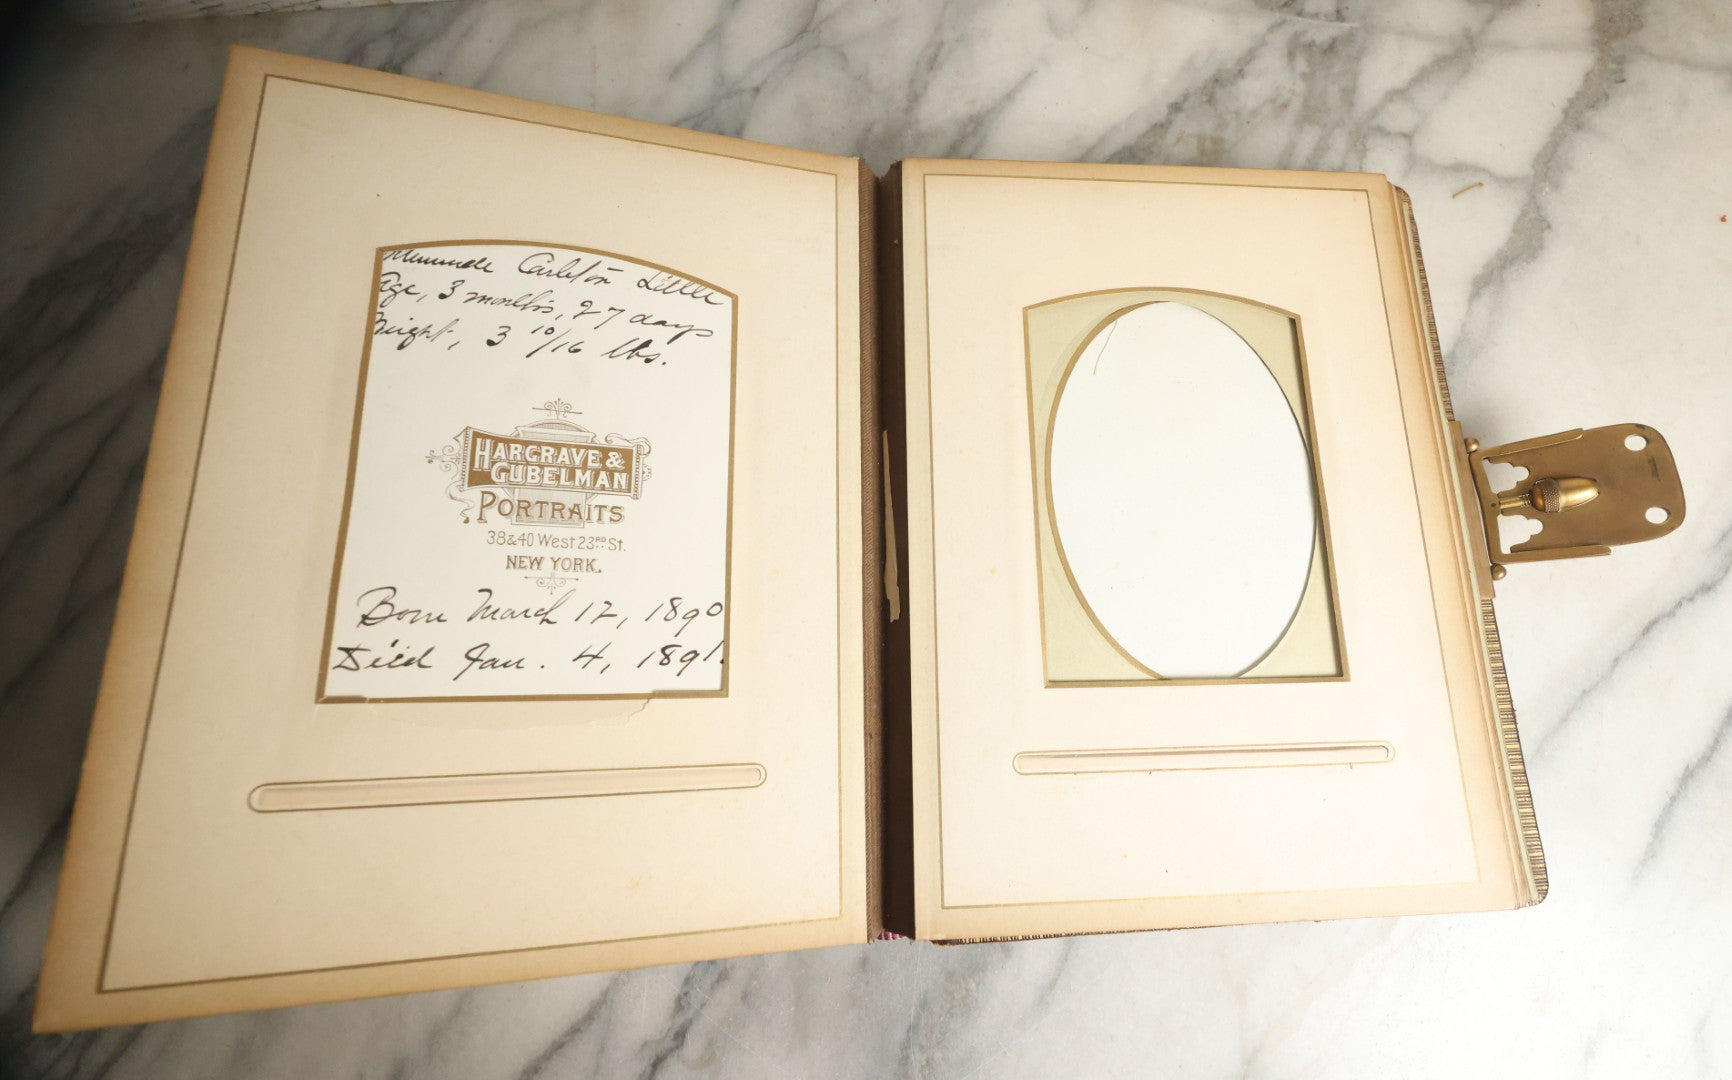 Carleton Little
Age, 3 months, 27 days
Weight, 3 10/16 lbs.
HARGRAVE &
GUBELMAN
PORTRAITS
38 & 40 West 23RD St.
NEW YORK.
Born March 12, 1890
Died Jan. 4, 1891.